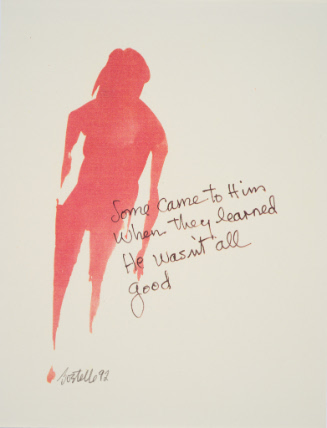 Some came to Him
when they learned
He wasn't all
good
Bostelle 92